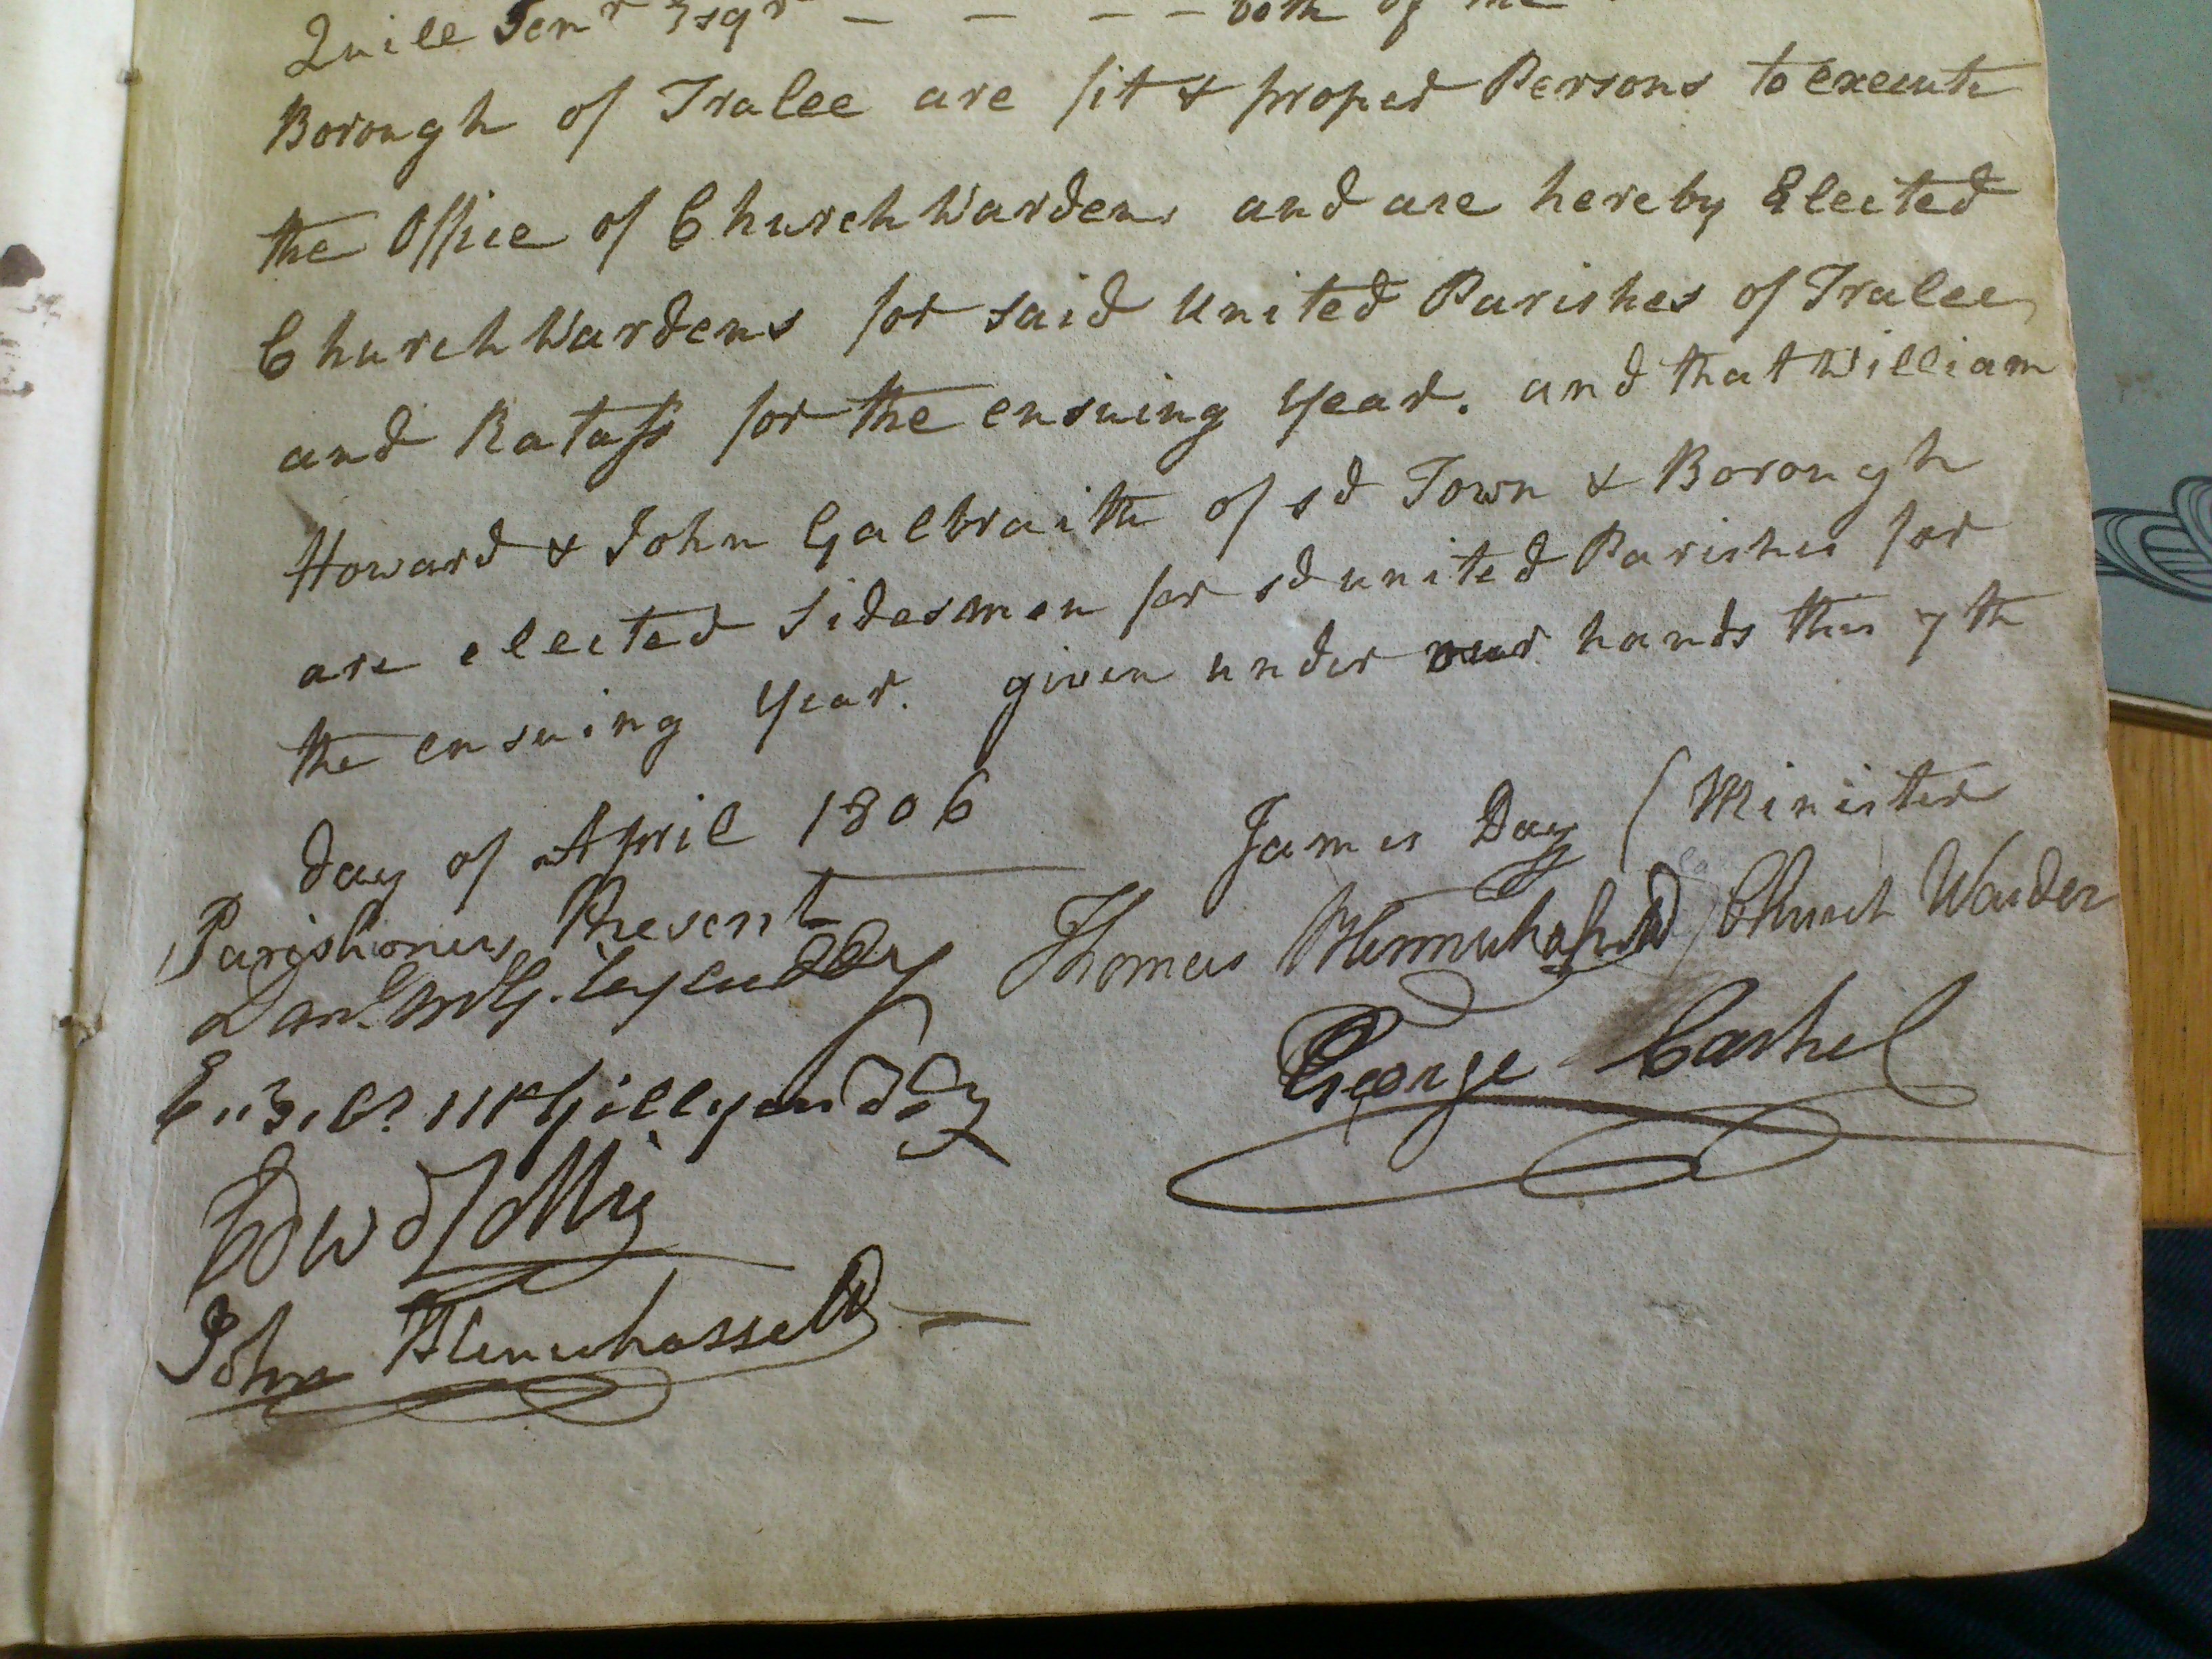 Quill Senr Esqr — — — — both of the
Borough of Tralee are fit & proper Persons to execute
the Office of Church Wardens and are hereby Elected
Church Wardens for said United Parishes of Tralee
and Ratass for the ensuing Year. and that William
Howard & John Galbraith of sd Town & Borough
are elected Sidesmen for sd united Parishes for
the ensuing Year. given under our hands this 7th
day of April 1806
James Day (Minister
Parishioners Present
Thomas Blennerhassett) Church Warden
George Cashel
McGillycuddy
Edwd
John Blennerhassett